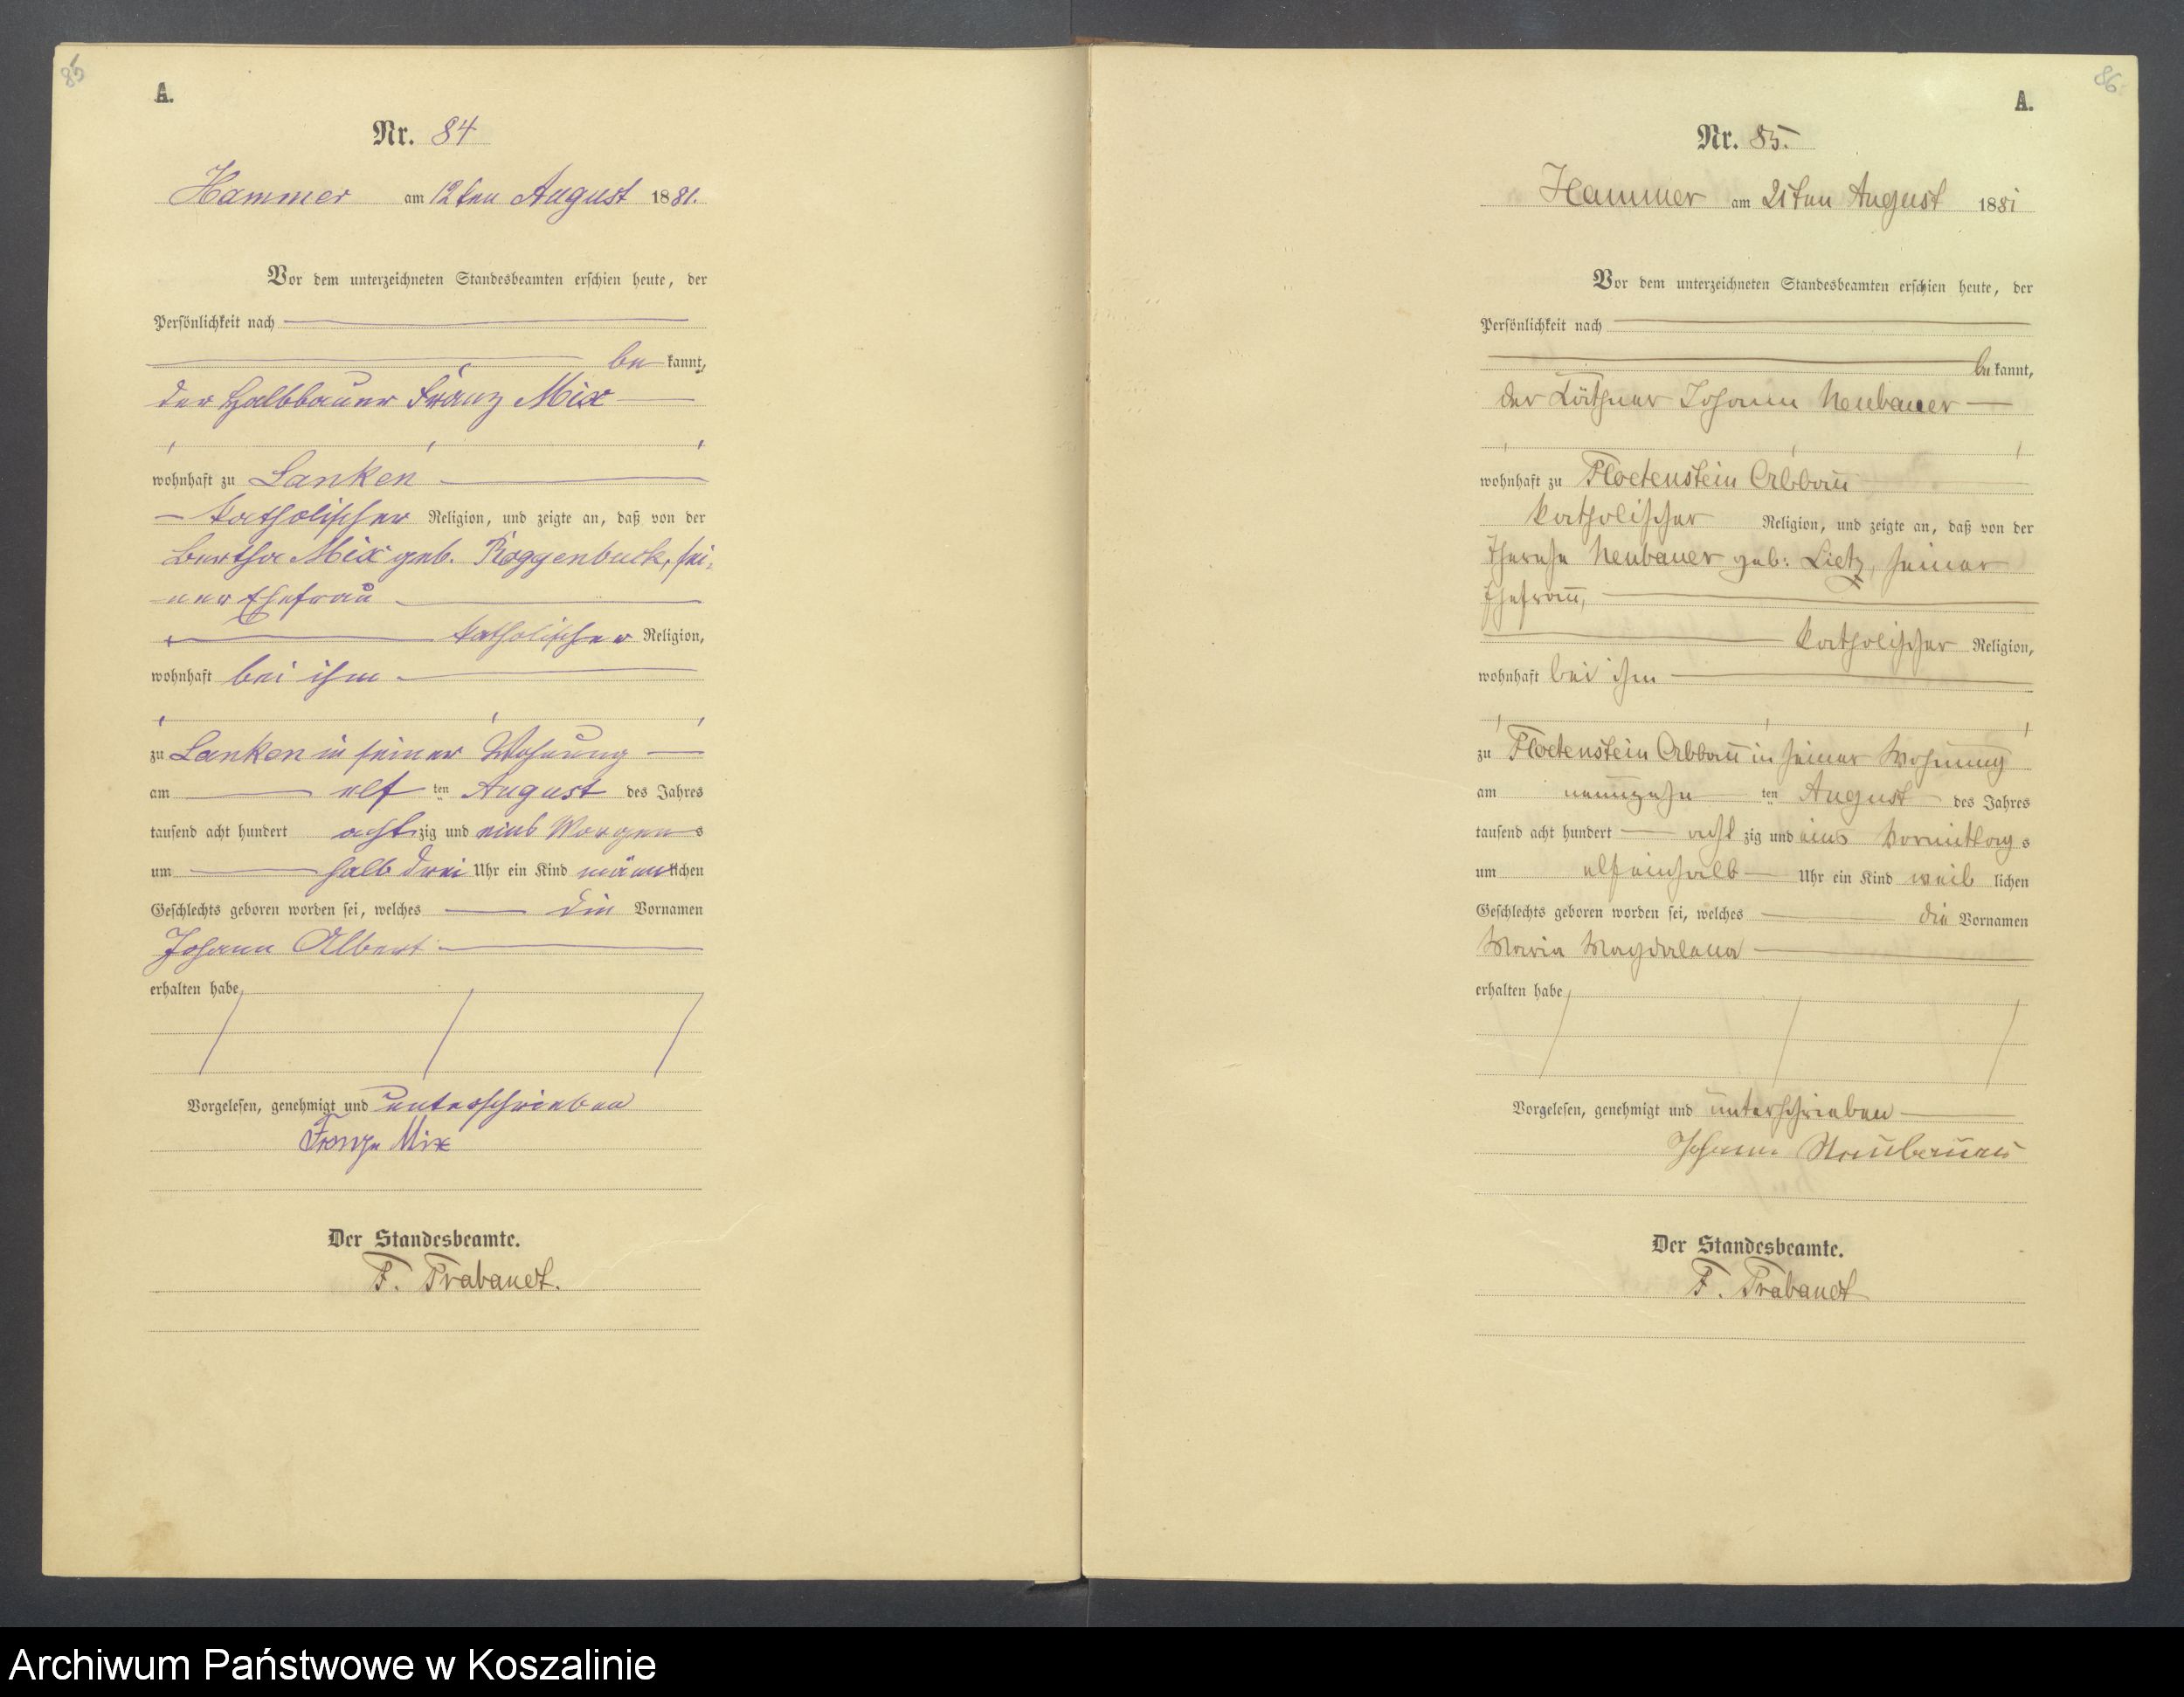 85
A.
Nr. 84
Hammer am 12ten August 1881.
Vor dem unterzeichneten Standesbeamten erschien heute, der
Persönlichkeit nach
be kannt,
der Halbbauer Franz Mix
wohnhaft zu Lanken
katholischer Religion, und zeigte an, daß von der
Bertha Mix geb. Roggenbuck, sei-
ner Ehefrau
katholischer Religion,
wohnhaft bei ihm
zu Lanken in seiner Wohnung
am elf ten August des Jahres
tausend acht hundert acht zig und eins Morgens
um halb drei Uhr ein Kind männlichen
Geschlechts geboren worden sei, welches die Vornamen
Johann Albert
erhalten habe
Vorgelesen, genehmigt und unterschrieben
Franz Mix
Der Standesbeamte.
F. Prabandt.
86.
A.
Nr. 85.
Hammer am 21ten August 1881
Vor dem unterzeichneten Standesbeamten erschien heute, der
Persönlichkeit nach
be kannt,
der Käthner Johann Neubauer
wohnhaft zu Floetenstein Abbau
katholischer Religion, und zeigte an, daß von der
Therese Neubauer geb: Lietz, seiner
Ehefrau,
katholischer Religion,
wohnhaft bei ihm
zu Floetenstein Abbau in seiner Wohnung
am neunzehn ten August des Jahres
tausend acht hundert acht zig und eins Vormittags
um elfeinhalb Uhr ein Kind weib lichen
Geschlechts geboren worden sei, welches die Vornamen
Maria Magdalena
erhalten habe
Vorgelesen, genehmigt und unterschrieben
Johann Neubauer
Der Standesbeamte.
F. Prabandt
Archiwum Państwowe w Koszalinie